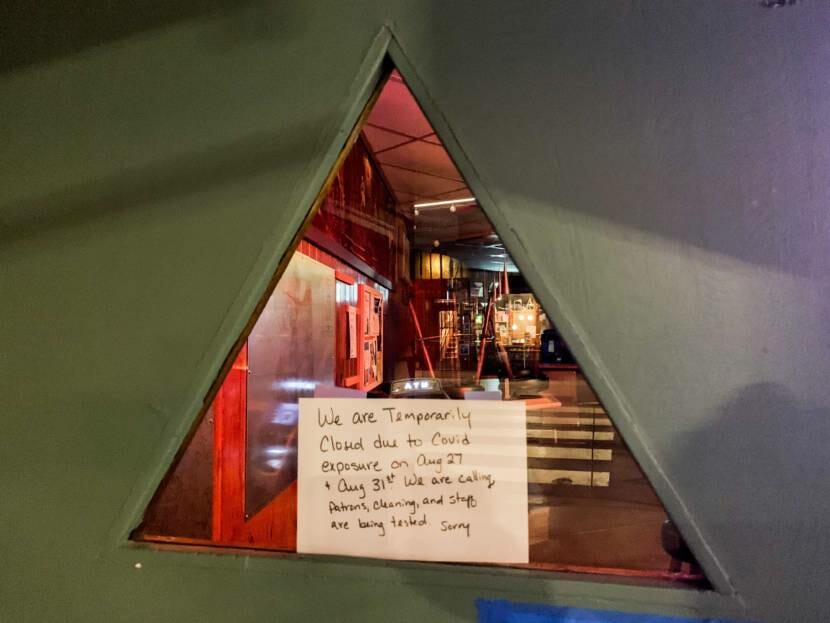 ATM
We are Temporarily
Closed due to Covid
exposure on Aug 27
+ Aug 31st We are calling
Patrons, cleaning, and staff
are being tested. Sorry